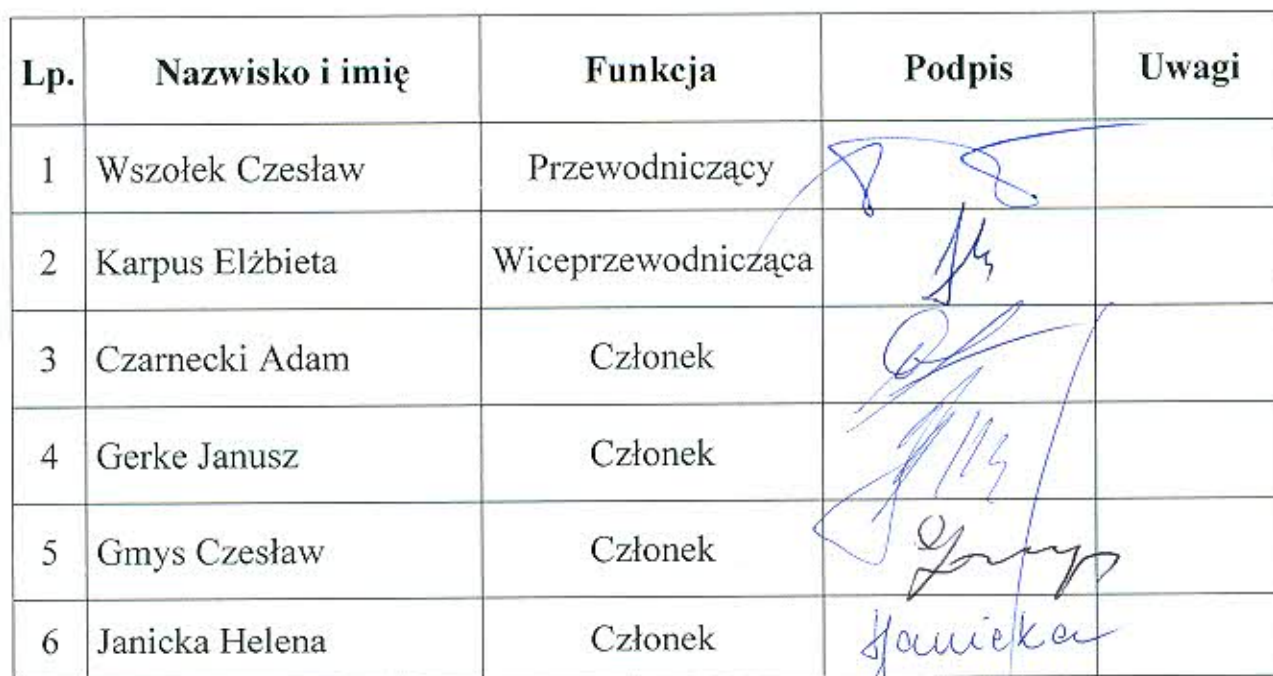 Lp. Nazwisko i imię Funkcja Podpis Uwagi
1 Wszołek Czesław Przewodniczący
2 Karpus Elżbieta Wiceprzewodnicząca
3 Czarnecki Adam Członek
4 Gerke Janusz Członek
5 Gmys Czesław Członek Gmys
6 Janicka Helena Członek HJanicka